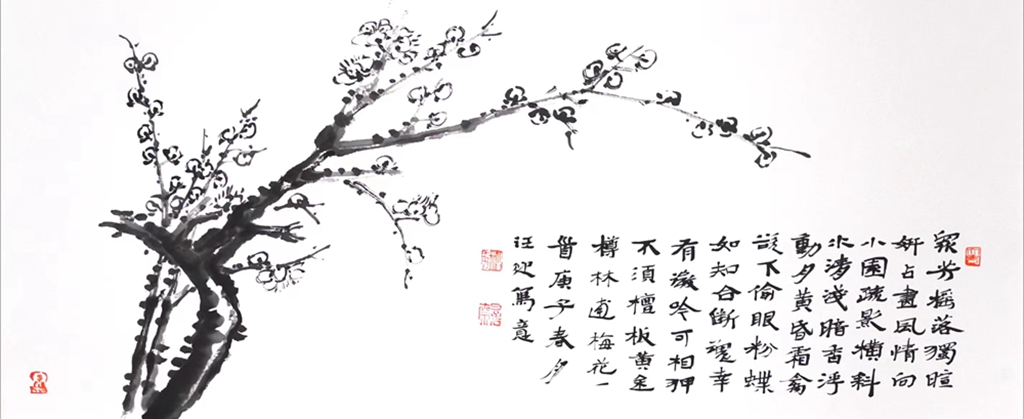 衆芳摇落獨暄
妍占盡風情向
小園疏影横斜
水清淺暗香浮
動月黄昏霜禽
欲下偷眼粉蝶
如知合斷魂幸
有微吟可相狎
不須檀板黄金
樽林逋梅花一
首庚子春月
汪寫意